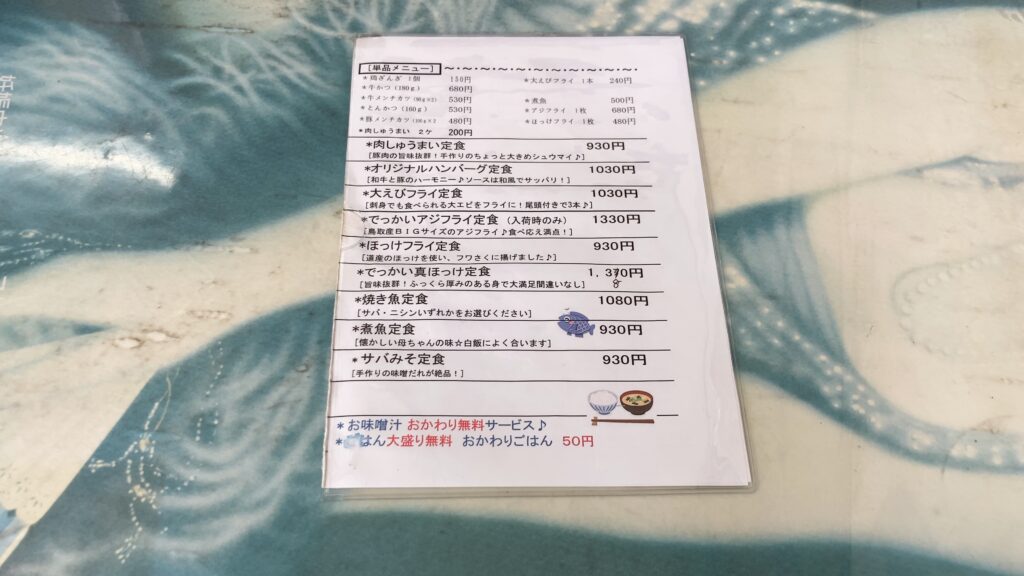 [単品メニュー] ~・~・~・~・~・~・~・~・~・~・~・
*鶏ざんぎ 1個 150円 *大えびフライ 1本 240円
*牛かつ(180g) 680円
*牛メンチカツ(90g×2) 530円 *煮魚 500円
*とんかつ(160g) 530円 *アジフライ 1枚 680円
*豚メンチカツ(100g×2 480円 *ほっけフライ 1枚 480円
*肉しゅうまい 2ケ 200円
*肉しゅうまい定食 930円
[豚肉の旨味抜群!手作りのちょっと大きめシュウマイ♪]
*オリジナルハンバーグ定食 1030円
[和牛と豚のハーモニー♪ソースは和風でサッパリ!]
*大えびフライ定食 1030円
[刺身でも食べられる大エビをフライに!尾頭付きで3本♪]
*でっかいアジフライ定食(入荷時のみ) 1330円
[鳥取産BIGサイズのアジフライ♪食べ応え満点!]
*ほっけフライ定食 930円
[道産のほっけを使い、フワさくに揚げました♪]
*でっかい真ほっけ定食 1,380円
[旨味抜群!ふっくら厚みのある身で大満足間違いなし]
*焼き魚定食 1080円
[サバ・ニシンいずれかをお選びください]
*煮魚定食 930円
[懐かしい母ちゃんの味☆白飯によく合います]
*サバみそ定食 930円
[手作りの味噌だれが絶品!]
*お味噌汁 おかわり無料サービス♪
*ごはん大盛り無料 おかわりごはん 50円